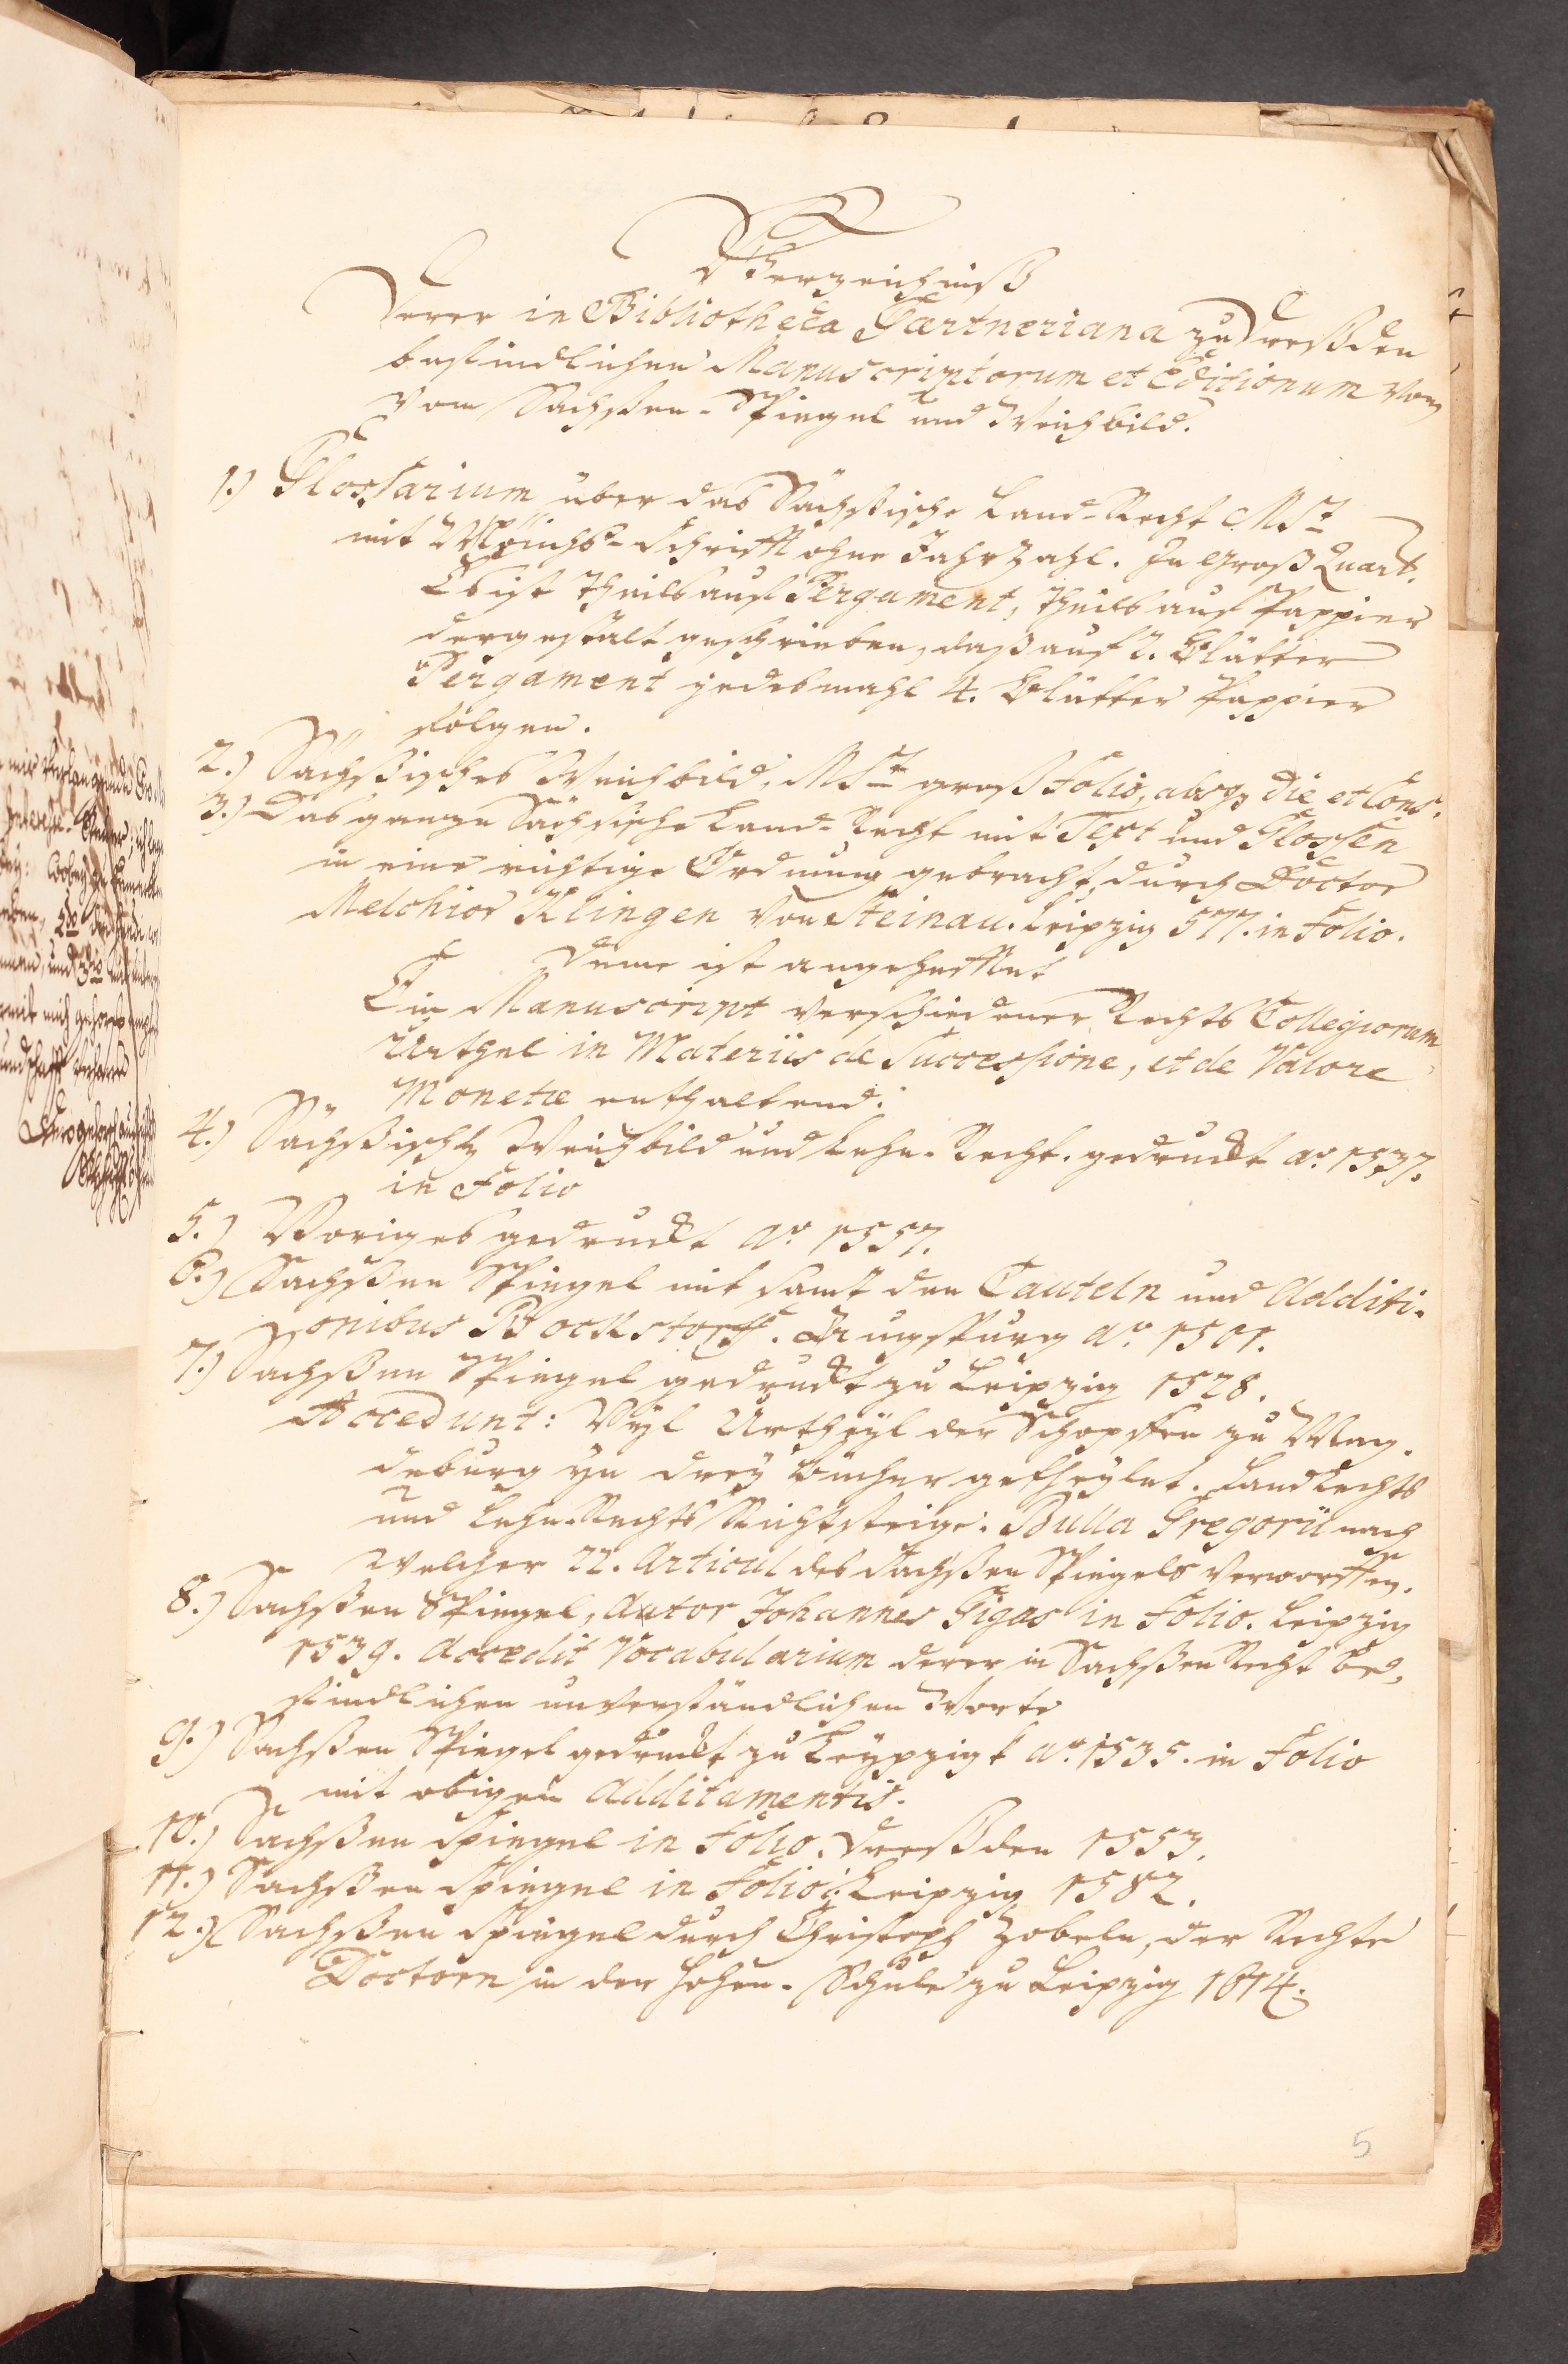 Verzeichniß
Derer in Bibliotheca Gærtneriana zu Dreßden
befindlichen Manuscriptorum et Editionum von
vom Sachßen-Spiegel und Weichbild.
1.) Glossarium über das Sächßische Land-Recht MSt
mit Mönchs-Schrifft ohne Jahrzahl. In groß Quart.
Es ist theils auf Pergament, theils auf Pappier
dergestalt geschrieben, daß auf 2. Blätter
Pergament jedesmahl 4. Blätter Pappier
folgen.
2.) Sächßisches Weichbild, MSt groß Folio, absq die et Cons.
3.) Das ganze Sächsische Land-Recht mit Text und Glossen
in eine richtige Ordnung gebracht, durch Doctor
Melchior Klingen von Steinau. Leipzig 577. in Folio.
Deme ist angehefftet
Ein Manuscript verschiedener Rechts Collegiorum
Urthel in Materiis de Successione, et de Valore
Monetæ enthaltend.
4.) Sächßisch Weichbild und Lehn-Recht. gedruckt ao. 1537.
in Folio
5.) Voriges gedruckt ao. 1557.
6.) Sachßen Spiegel mit samt den Cauteln und Additi-
onibus Bockstorff. Augspurg ao. 1501.
7.) Sachßen Spiegel gedruckt zu Leipzig 1528.
Accedunt: Vyl Urtheyl der Schopffen zu Mag-
deburg yn drey Bücher getheylet. Land Rechts
und Lehn-Rechts Richtsteige. Bulla Gregorii nach
welcher 22. Articul des Sachßen Spiegels verworffen.
8.) Sachßen Spiegel, Autor Johannes Gigas in Folio. Leipzig
1539. Accedit Vocabularium derer in Sachßen Recht be-
findlichen unverständlichen Worte
9.) Sachßen Spiegel gedruckt zu Leypzigk ao. 1535. in Folio
mit obigen Additamentis.
10.) Sachßen Spiegel in Folio. Dreßden 1553.
11.) Sachßen Spiegel in Folio. Leipzig 1582.
12.) Sachßen Spiegel durch Christoph Zobeln, der Rechte
Doctorn in der hohen-Schule zu Leipzig 1614.
5